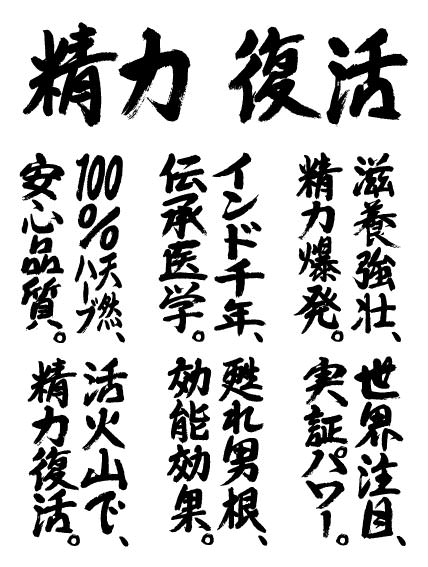 精力 復活
滋養強壮、
精力爆発。
インド千年、
伝承医学。
100%天然ハーブ、
安心品質。
世界注目、
実証パワー。
甦れ男根、
効能効果。
活火山で、
精力復活。